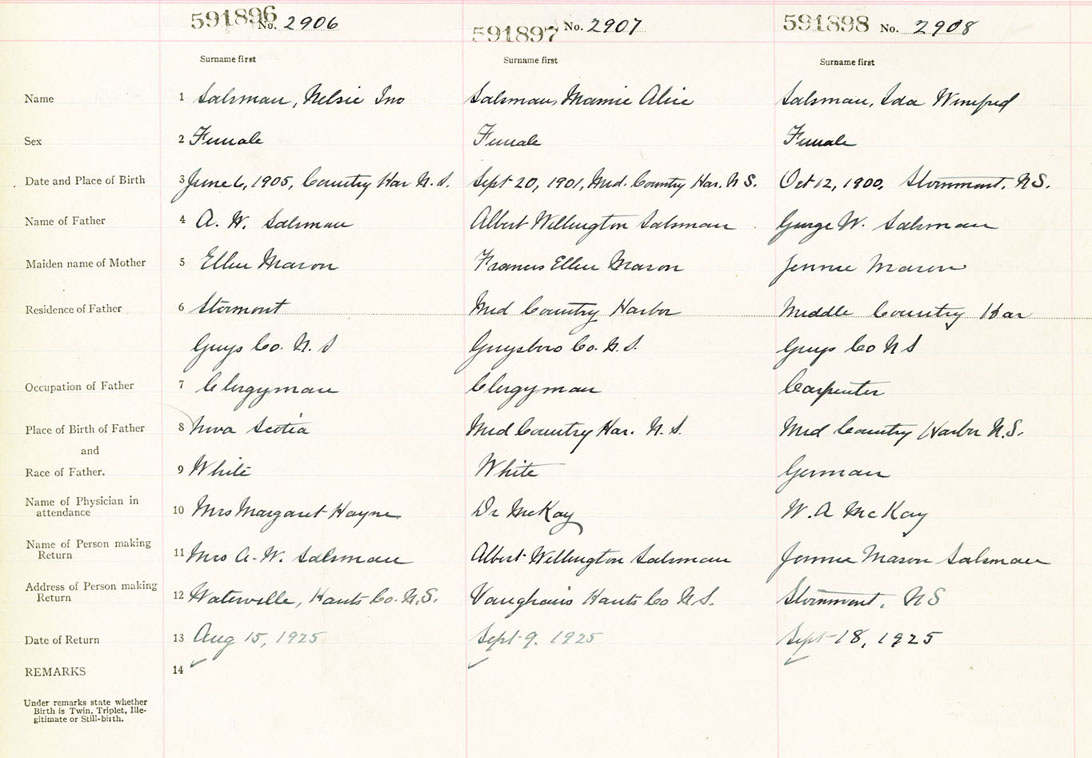 591896 No. 2906 591897 No. 2907 591898 No. 2908
Surname first Surname first Surname first
Name 1 Salsman, Nelsie Ino Salsman, Mamie Alice Salsman, Ida Winifred
Sex 2 Female Female Female
Date and Place of Birth 3 June 6, 1905, Country Har N.S. Sept 20, 1901, Mid. Country Har. N S. Oct 12, 1900, Stormont. N.S.
Name of Father 4 A. W. Salsman Albert Wellington Salsman George W. Salsman
Maiden name of Mother 5 Ellen Mason Francis Ellen Mason Jennie Mason
Residence of Father 6 Stormont Mid Country Harbor Middle Country Har
Guys Co. N. S Guysboro Co. N. S. Guys Co N S
Occupation of Father 7 Clergyman Clergyman Carpenter
Place of Birth of Father 8 Nova Scotia Mid Country Har. N. S. Mid Country Harbor N.S.
and
Race of Father. 9 White White German
Name of Physician in
attendance 10 Mrs Margaret Hayne Dr McKay W. A McKay
Name of Person making
Return 11 Mrs A. W. Salsman Albert Wellington Salsman Jennie Mason Salsman
Address of Person making
Return 12 Waterville, Hants Co. N.S. Vaughans Hants Co N.S. Stormont, N S
Date of Return 13 Aug 15, 1925 Sept 9. 1925 Sept 18, 1925
REMARKS 14
Under remarks state whether
Birth is Twin, Triplet, Ille-
gitimate or Still-birth.